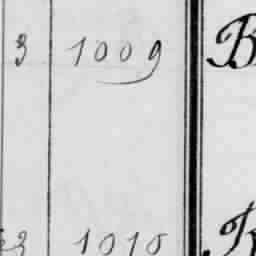 3 1009 B
3 1010